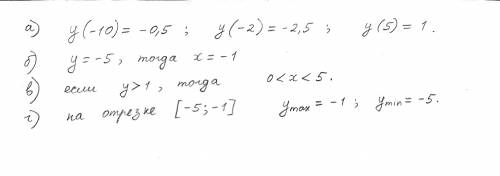 а) y(-10) = -0,5 ; y(-2) = -2,5 ; y(5) = 1 .
б) y = -5 , тогда x = -1
в) если y > 1 , тогда 0 < x < 5 .
г) на отрезке [-5; -1] y max = -1 ; y min = -5.